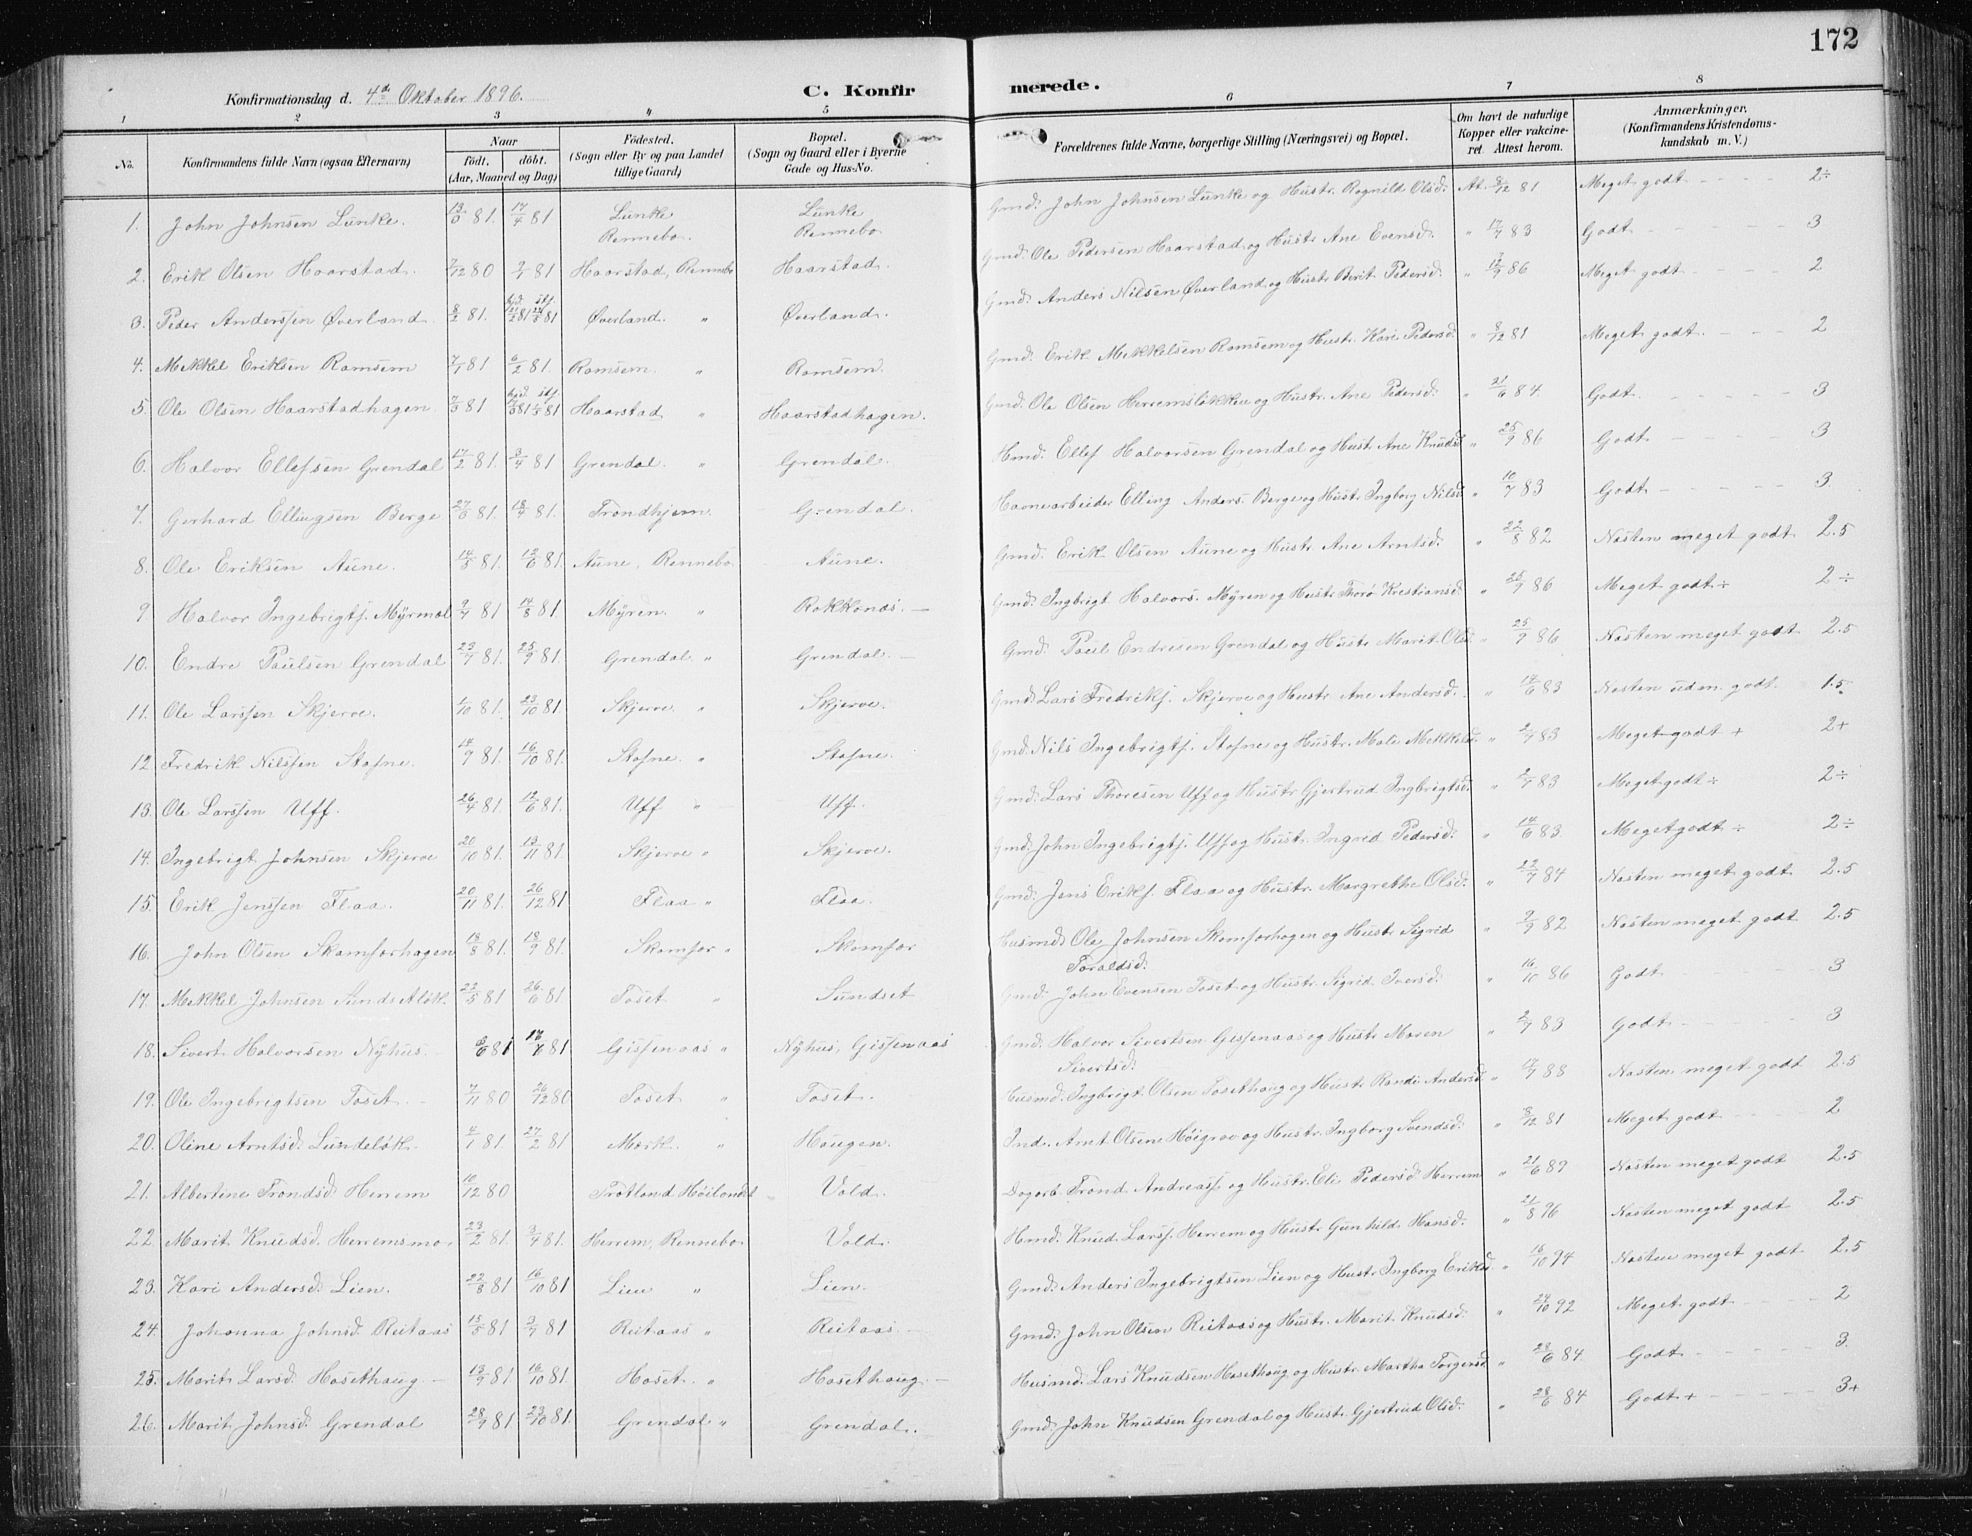 172
Konfirmationsdag d. 4de Oktober 1896.
C. Konfirmerede.
1 2 3 4 5 6 7 8
No. Konfirmandens fulde Navn (ogsaa Efternavn) Naar født. døbt. (Aar, Maaned og Dag) Fødested. (Sogn eller By og paa Landet tillige Gaard) Bopæl. (Sogn og Gaard eller i Byerne Gade og Hus-No. Forældrenes fulde Navne, borgerlige Stilling (Næringsvei) og Bopæl. Om havt de naturlige Kopper eller vakcineret Attest herom. Anmærkninger. (Konfirmandens Kristendomskundskab m. V.)
1. John Johnsen Lunke. 13/3 81. 17/4 81 Lunke Rennebo. Lunke Rennebo Gmd. John Johnsen Lunke og Hustr. Ragnild Olsd. At. 8/12 81 Meget godt 2÷
2. Erik Olsen Haarstad. 7/12 80 2/1 81 Haarstad, Rennebo Haarstad. Gmd. Ole Pedersen Haarstad og Hustr. Ane Evensd. " 17/7 83 Godt 3
3. Peder Anderssen Øverland 8/2 81. hjd. stf. Øverland. " Øverland. Gmd. Anders Nilsen Øverland og Hustr. Berit Pedersd. " 12/9 86 Meget godt 2
4. Mekkel Eriksen Ramsem 7/1 81 6/2 81. Ramsem " Ramsem. Gmd. Erik Mekkelsen Ramsem og Hustr. Kari Pedersd. " 8/12 81 Meget godt. 2
5. Ole Olsen Haarstadhagen. 7/3 81 hjd. stf. Haarstad " Haarstadhagen. Gmd. Ole Olsen Herremsløkken og Hustr. Ane Pedersd. " 21/6 84. Godt. 3
6. Halvor Ellefsen Grendal 17/2 81. 3/4 81 Grendal. " Grendal. Hmd. Ellef Halvorsen Grendal og Hustr. Ane Knudsd. " 25/9 86 Godt 3
7. Gerhard Ellingsen Berge 27/3 81. 18/4 81. Trondhjem. Grendal. Havnearbeider Elling Anders. Berge og Hustr. Ingborg Nilsd. " 16/7 83 Godt 3
8. Ole Eriksen Aune. 14/5 81. 12/6 81. Aune, Rennebo. Aune. Gmd. Erik Olsen Aune og Hustr. Ane Arntsd. " 22/8 82 Næsten meget godt 2.5
9 Halvor Ingebrigts. Myrmæl 9/7 81 14/8 81. Myren. " Rokkones. Gmd. Ingbrigt Halvors. Myren og Hustr. Thorø Krestiansd. " 25/9 86 Meget godt ÷ 2÷
10. Endre Paulsen Grendal 23/7 81. 25/9 81. Grendal " Grendal. Gmd. Paul Endresen Grendal og Hustr. Marit Olsd. " 25/9 86 Næsten meget godt 2.5
11. Ole Larssen Skjerve. 1/10 81. 23/10 81 Skjerve. " Skjerve. Gmd. Lars Fredriks. Skjerve og Hustr. Ane Andersd. " 12/6 83 Næsten udm. godt. 1.5
12. Fredrik Nilssen Stofne. 14/9 81. 16/10 81. Stofne. " Stofne. Gmd. Nils Ingebrigts. Stofne og Hustr. Mali Mekkelsd. " 2/7 83 Meget godt + 2+
13. Ole Larssen Uff. 26/4 81. 12/6 81. Uff " Uff. Gmd. Lars Thoresen Uff og Hustr. Gjertrud Ingbrigtsd. " 2/7 83 Meget godt ÷ 2÷
14. Ingebrigt Johnsen Skjerve 20/10 81. 13/11 81. Skjerve " Skjerve. Gmd. John Ingebrigts. Uff og Hustr. Ingrid Pedersd. " 14/6 83 Meget godt ÷ 2÷
15. Erik Jenssen Flaa. 20/11 81. 26/12 81 Flaa " Flaa. Gmd. Jens Eriks. Flaa og Hustr. Margrethe Olsd. " 22/7 84 Næsten meget godt 2.5
16. John Olsen Skamferhagen 13/8 81. 18/9 81. Skamfer " Skamfer Husmd. Ole Johnsen Skamferhagen og Hustr. Sigrid Toraldsd. " 2/9 82 Næsten meget godt 2.5
17. Mekkel Johnsen Sundsetløk. 22/5 81 26/6 81 Toset " Sundset Gmd. John Evensen Toset og Hustr. Sigrid Iversd. " 16/10 86 Godt 3
18. Sivert Halvorsen Nyhus. 81 81. Gissenaas " Nyhus, Gissenaas Gmd. Halvor Sivertsen Gissenaas og Hustr. Maren Sivertsd. " 2/7 83 Godt 3
19. Ole Ingebrigtsen Toset. 7/11 80 26/12 80 Toset " Toset. Husmd. Ingbrigt Olsen Tosethaug og Hustr. Randi Andersd. " 17/7 88 Næsten meget godt 2.5
20. Oline Arntsd. Lundeløk. 4/1 81 27/2 81 Mærk. " Haugen. Ind. Arnt Olsen Høigrav og Hustr. Ingborg Svendsd. " 8/12 81 Meget godt 2
21. Albertine Trondsd. Herrem 10/12 80 Trotland Høilandet " Vold. Dagarb. Trond Andreass. og Hustr. Eli Pedersd. Herrem " 21/6 89 Næsten meget godt 2.5
22 Marit Knudsd. Herremsmo. 23/2 81 3/4 81. Herrem, Rennebo Vold. Hmd. Knud Larss. Herrem og Hustr. Gunhild Hansd. " 21/8 96 Næsten meget godt 2.5
23. Kari Andersd. Lien. 22/8 81 16/10 81 Lien " Lien. Gmd. Anders Ingebrigtsen Lien og Hustr. Ingborg Eriksd. " 16/10 94 Næsten meget godt. 2.5
24. Johanna Johnsd. Reitaas 15/5 81 3/7 81 Reitaas " Reitaas. Gmd. John Olsen Reitaas og Hustr. Marit Knudsd. " 24/10 92 Meget godt 2
25. Marit Larsd. Hosethaug 13/9 81 16/10 81. Hoset. " Hosethaug. Husmd. Lars Knudsen Hosethaug og Hustr. Martha Torgersd. " 28/6 84 Godt 3.
26. Marit Johnsd. Grendal 28/9 81 23/10 81. Grendal " Grendal. Gmd. John Knudsen Grendal og Hustr. Gjertrud Olsd. " 28/6 84 Godt + 3+